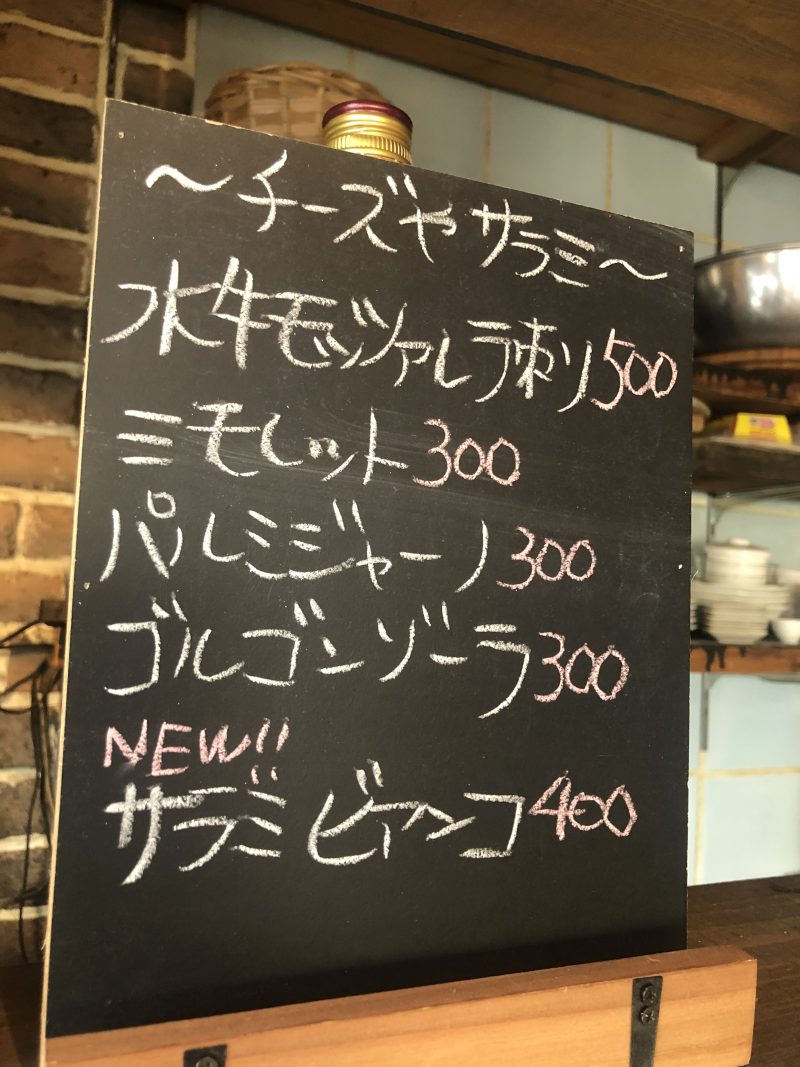 ～チーズやサラミ～
水牛モッツァレラ刺り500
ミモレット300
パルミジャーノ300
ゴルゴンゾーラ300
NEW!!
サラミビアンコ400